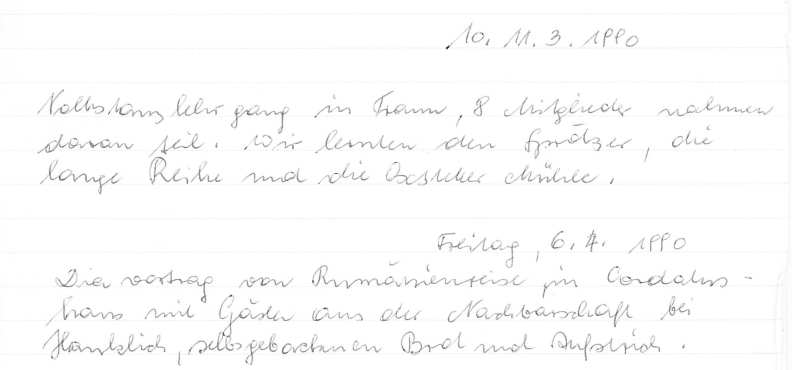 10. 11. 3. 1990
Volkstanzlehrgang in Traun, 8 Mitglieder nahmen
daran teil. Wir lernten den Sprötzer, die
lange Reihe und die Mühle.
Freitag, 6. 4. 1990
Diavortrag von Rumänienreise im Cordatus-
haus mit Gästen aus der Nachbarschaft bei
selbsgebackenen Brot und Aufstrich.